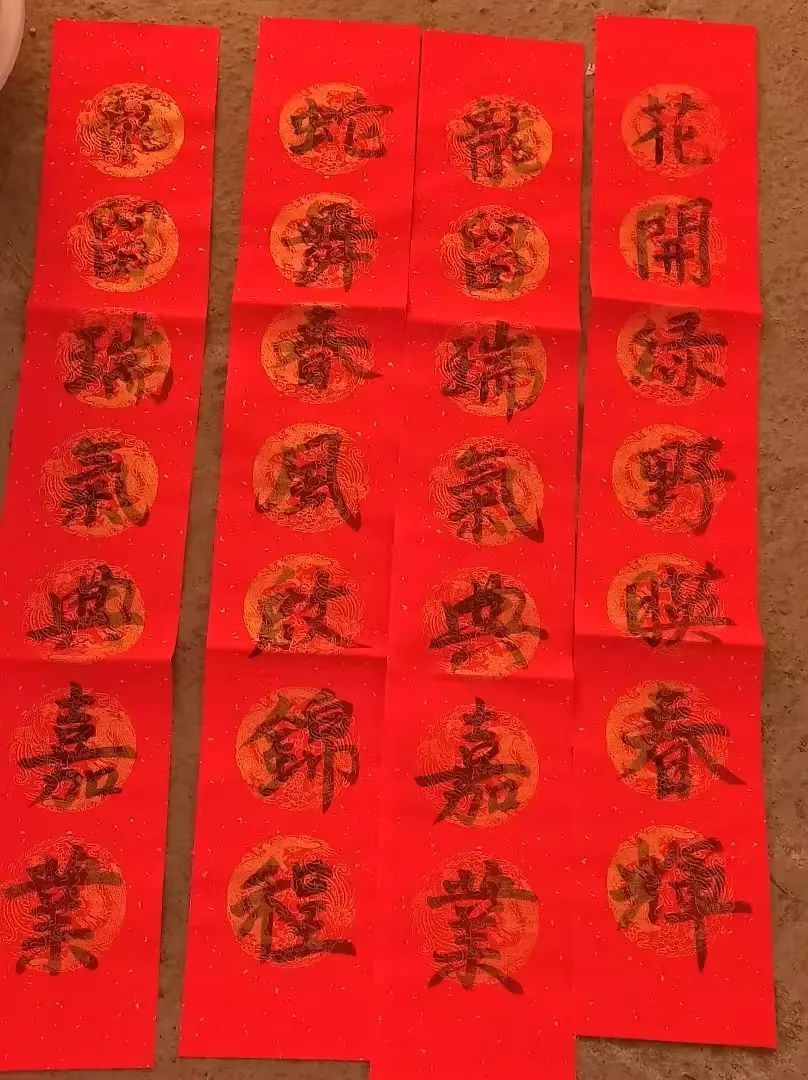 花開绿野暎春輝
龍留瑞氣典嘉業
蛇舞春風啟錦程
龍留瑞氣典嘉業